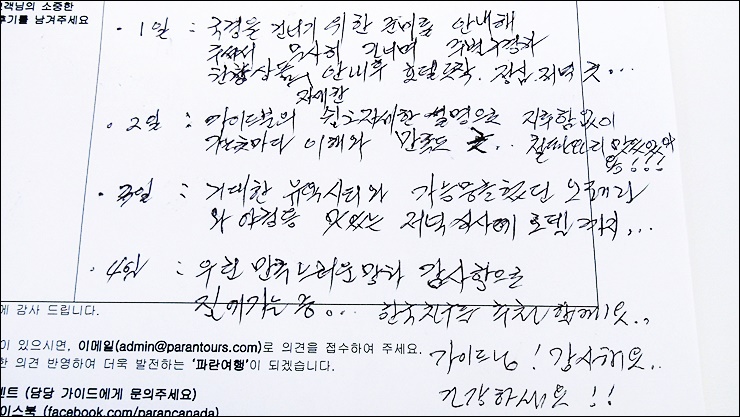 고객님의 소중한
후기를 남겨주세요
· 1일 : 국경을 건너기 위한 준비를 안내해
주셔서 무사히 건너며 주변구경하
안내후 호텔도착. 점심. 저녁 굿...
자세한
· 2일 : 가이드분의 쉽고 자세한 설명으로 지루함없이
이해와 만족도 굿..
요!!!
· 3일 : 거대한 뉴욕시티와
와 야경을 맛있는 저녁식사에 호텔까지...
· 4일 : 무한 만족드러운 말과 감사함으로
집에가는 중... 한국친구들 추천할께요..
에 감사 드립니다.
이 있으시면, 이메일(admin@parantours.com)로 의견을 접수하여 주세요.
한 의견 반영하여 더욱 발전하는 '파란여행'이 되겠습니다.
가이드님! 감사해요..
벤트 (담당 가이드에게 문의주세요)
건강하세요!!
이스북 (facebook.com/parancanada)